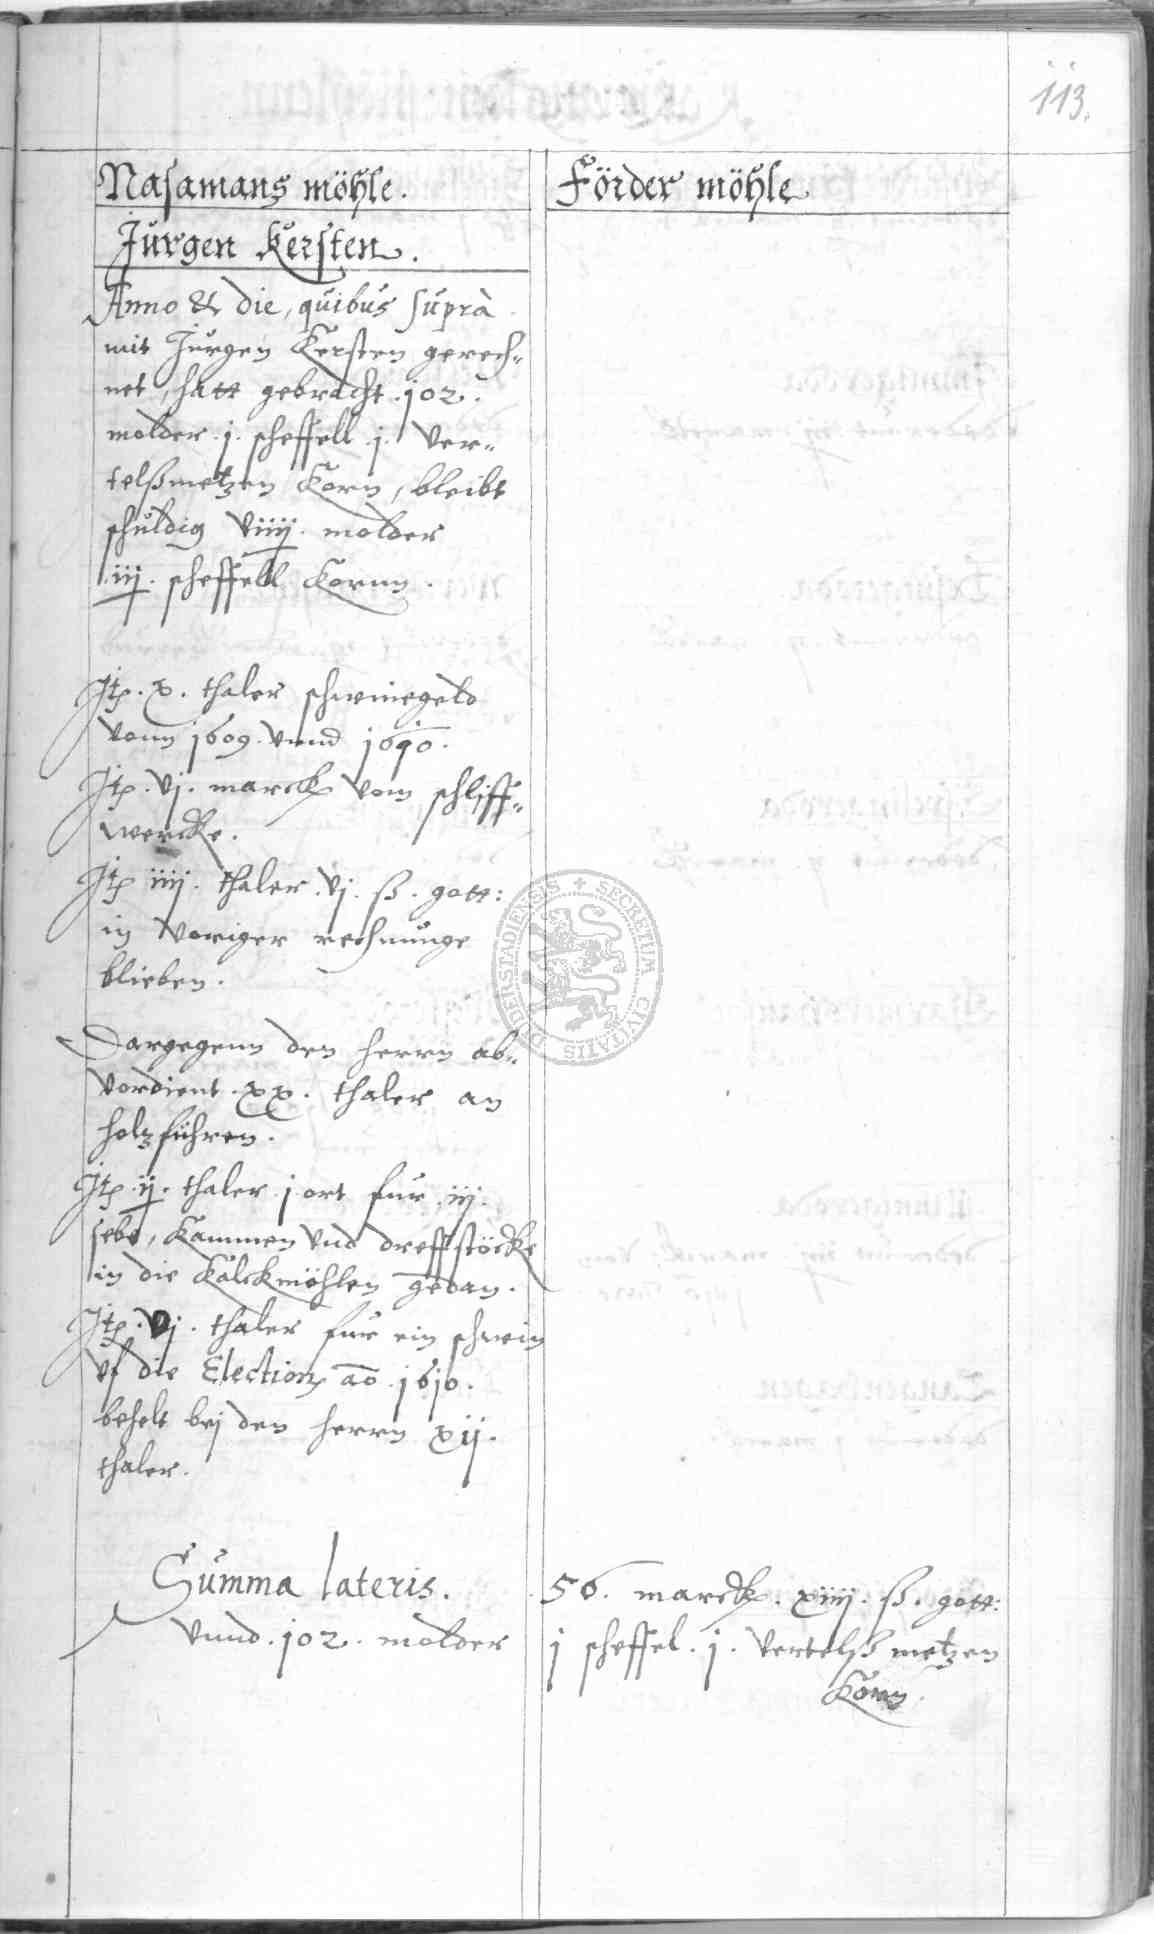 113.
Nasamans möhle.
Jürgen Kersten.
Anno & die, quibus suprà
mit Jürgen Kersten gerech-
net, hatt gebracht .102.
molder .j. scheffell .j. Ver-
telßmetzen Korn, bleibt
schuldig viiij. molder
.iij. scheffell Kornn.
Itp. x. thaler schwinegeld
vonn 1609. vnnd 1610.
Itp. vj. marck vom schliff-
wercke.
Itp iiij. thaler .vj. ß. gott:
in voriger rechnunge
blieben.
Dargegenn den herrn ab-
vordient .xx. thaler an
holzführen.
Itp .ij. thaler .j ort fur .iij.
sebe, Kammen vnd dreffstöcke
in die Kalckmöhlen gedan.
Itp. vj. thaler fur ein schwin
vf die Election ao .1610.
behelt bej den herrn xij.
thaler.
Förder möhle
Summa lateris. 56. marck. xiiij. ß. gott:
vnnd .102. molder j scheffel .j. Vertelß metzen
Korn.
SECRETUM CIVITATIS DUDERSTADIENSIS